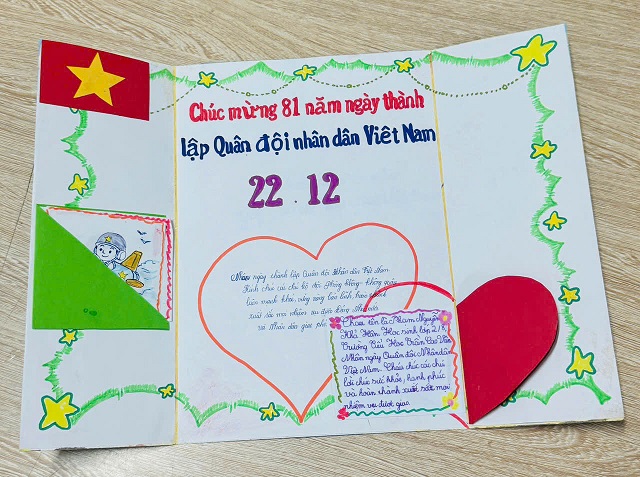 Chúc mừng 81 năm ngày thành
lập Quân đội nhân dân Việt Nam
22.12
Nhân ngày thành lập Quân đội Nhân dân Việt Nam
Kính chúc các chú bộ đội Phòng Không - Không quân
luôn mạnh khỏe, vững vàng
xuất sắc mọi nhiệm vụ được Đảng, Nhà nước
và Nhân dân giao phó
Cháu tên là Phạm Nguyễn
Khả Hân Học sinh lớp 2/8,
Trường Tiểu Học Trần Cao Vân
Nhân ngày Quân đội Nhân dân
Việt Nam. Cháu chúc các chú
lời chúc sức khỏe, hạnh phúc
và hoàn thành xuất sắc mọi
nhiệm vụ được giao.